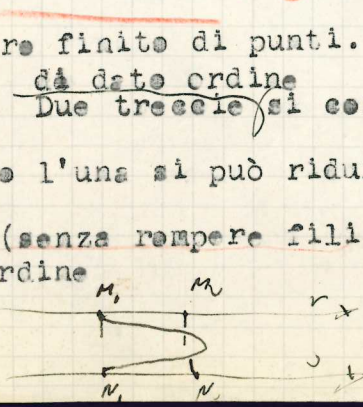 re finito di punti.
di dato ordine
Due treccie si co
o l'una si può ridu
(senza rompere fili
rdine
M₁ M₂ r
N₁ N₂ s